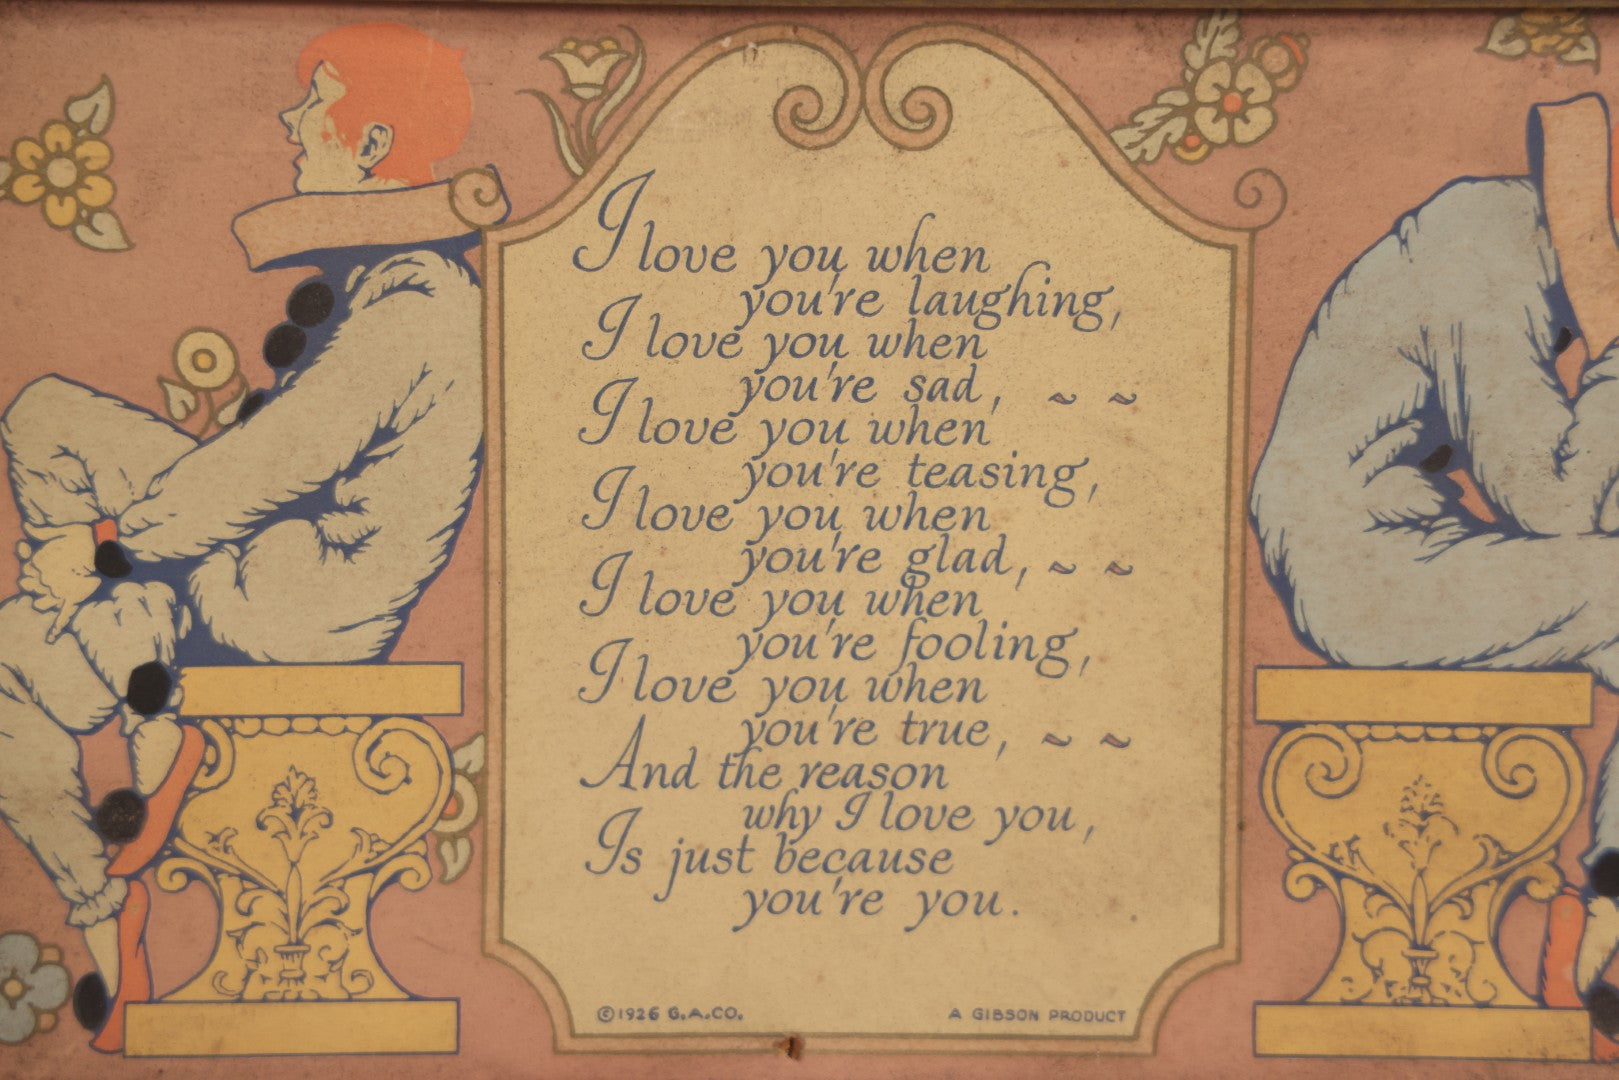 I love you when
you're laughing,
I love you when
you're sad, ~ ~
I love you when
you're teasing,
I love you when
you're glad, ~ ~
I love you when
you're fooling,
I love you when
you're true, ~ ~
And the reason
why I love you,
Is just because
you're you.
©1926 G.A.CO. A GIBSON PRODUCT